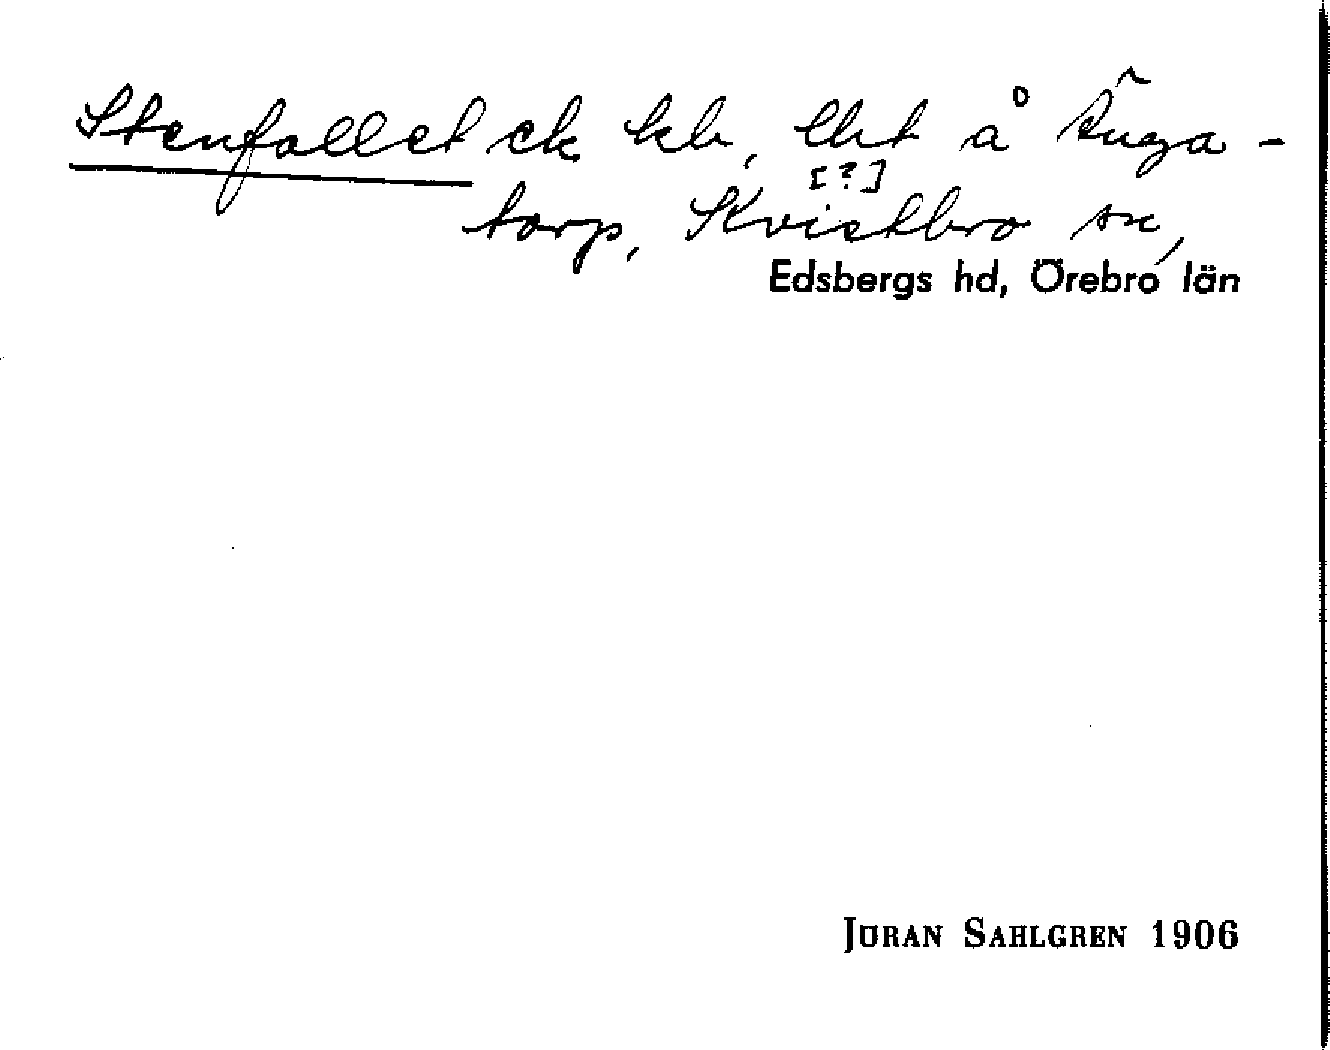 Stenfallet ek kb, lht å Tuga-
[?]
torp, Kvistbro sn,
Edsbergs hd, Örebro län
JÖRAN SAHLGREN 1906